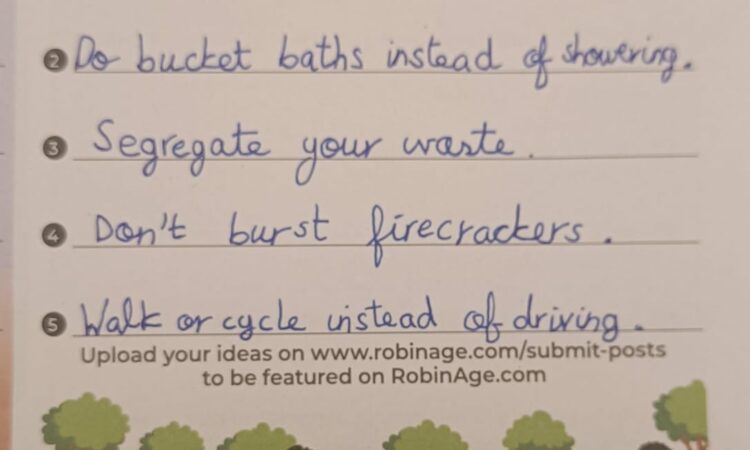 2 Do bucket baths instead of showering.
3 Segregate your waste.
4 Don't burst firecrackers.
5 Walk or cycle instead of driving.
Upload your ideas on www.robinage.com/submit-posts
to be featured on RobinAge.com